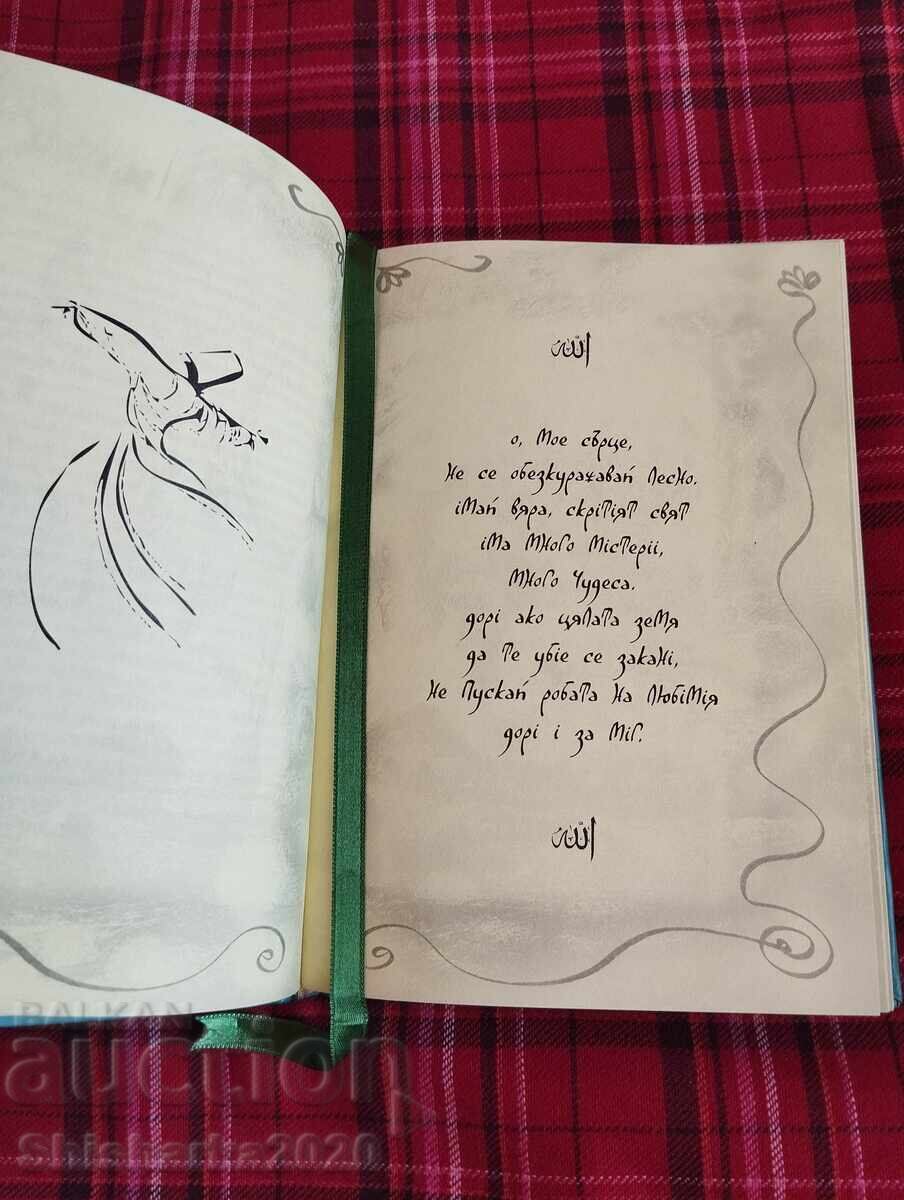 الله
о, Мое сърце,
Не се обезкуражавай лесно.
імай вяра, скрітіят свят
іма много містеріі,
много чудеса.
дорі ако цялата земя
да те убіе се закані,
Не пускай робата на любімія
дорі і за міг.
الله
BALKAN
auction
Shisharka2020